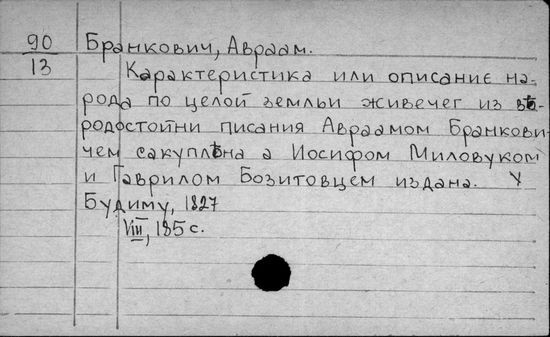 90
13
Бранкович, Авраам.
Карактеристика или описание на-
рода по целой земльи живечег из вѣ-
родостойни писания Авраамом Бранкови-
чем сакуплѣна а Иосифом Миловуком
и Гаврилом Бозитовцем издана. У
Будиму, 1827
VIII, 135 с.